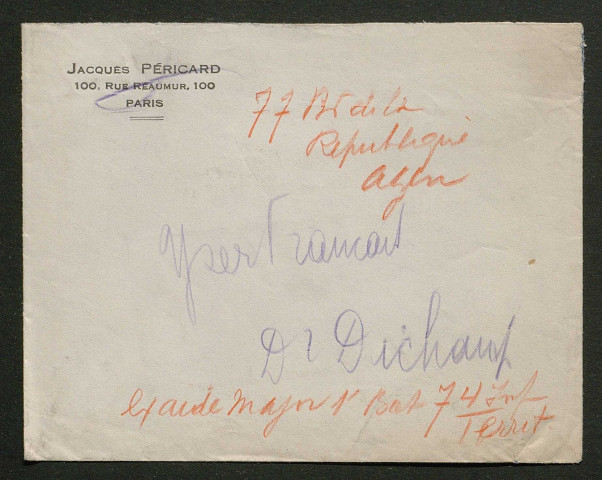 JACQUES PÉRICARD
100, RUE RÉAUMUR, 100
PARIS
77 Bd de la
République
Agen
Yser Francart
Dr Dichamp
Ex aide Major 1r Bat 74 Inf
Territ